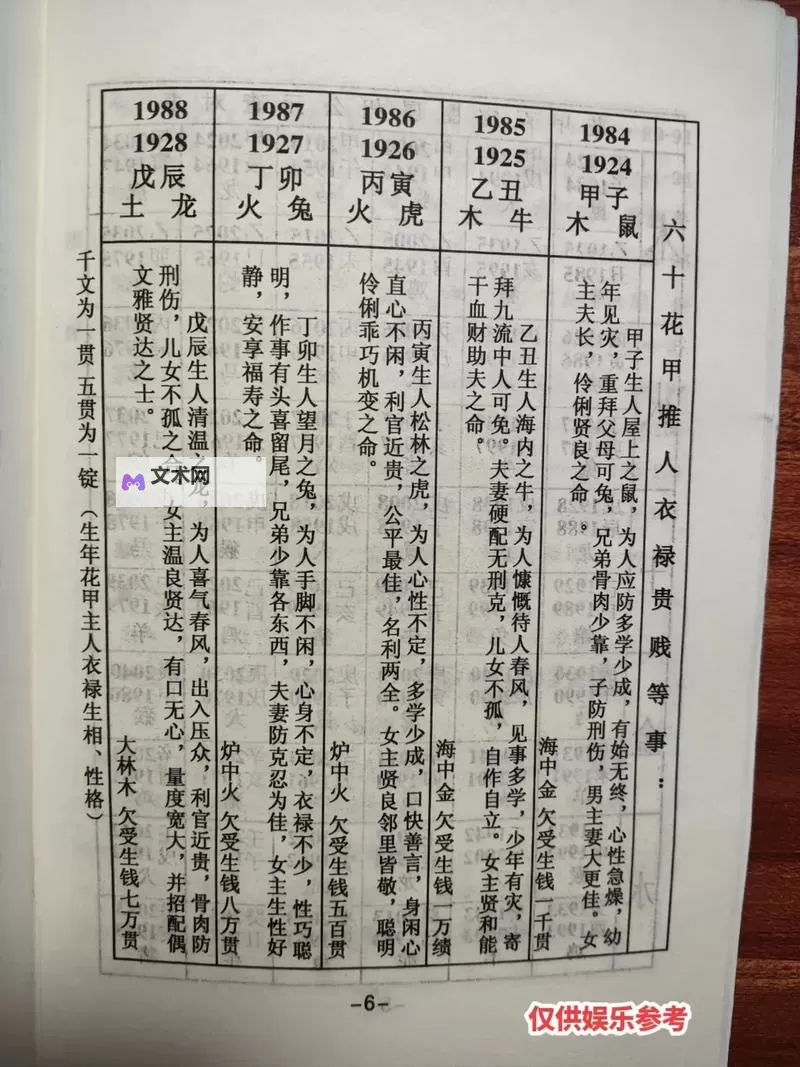 六十花甲推人衣禄贵贱等事：
1984
1924
甲子
木 鼠
甲子生人屋上之鼠，为人应防多学少成，有始无终，心性急燥，幼
年见灾，重拜父母可兔，兄弟骨肉少靠，子防刑伤，男主妻大更佳。女
主夫长，伶俐贤良之命 。
海中金 欠受生钱一千贯
1985
1925
乙丑
木 牛
乙丑生人海内之牛，为人慷慨待人春风，见事多学，少年有灾，寄
拜九流中人可免。夫妻硬配无刑克，儿女不孤，自作自立。女主贤和能
干血财助夫之命。
海中金 欠受生钱一万绩
1986
1926
丙寅
火 虎
丙寅生人松林之虎，为人心性不定，多学少成，口快善言，身闲心
直心不闲，利官近贵，公平最佳，名利两全。女主贤良邻里皆敬，聪明
伶俐乖巧机变之命。
炉中火 欠受生钱五百贯
1987
1927
丁卯
火 兔
丁卯生人望月之兔，为人手脚不闲，心身不定，衣禄不少，性巧聪
明，作事有头喜留尾，兄弟少靠各东西，夫妻防克忍为佳，女主生性好
静，安享福寿之命。
炉中火 欠受生钱八万贯
1988
1928
戊辰
土 龙
戊辰生人清温龙，为人喜气春风，出入压众，利官近贵，骨肉防
刑伤，儿女不孤之 女主温良贤达，有口无心，量度宽大，并招配偶
文雅贤达之士。
大林木 欠受生钱七万贯
千文为一贯 五贯为一锭（生年花甲主人衣禄生相、性格）
文术网
-6-
仅供娱乐参考